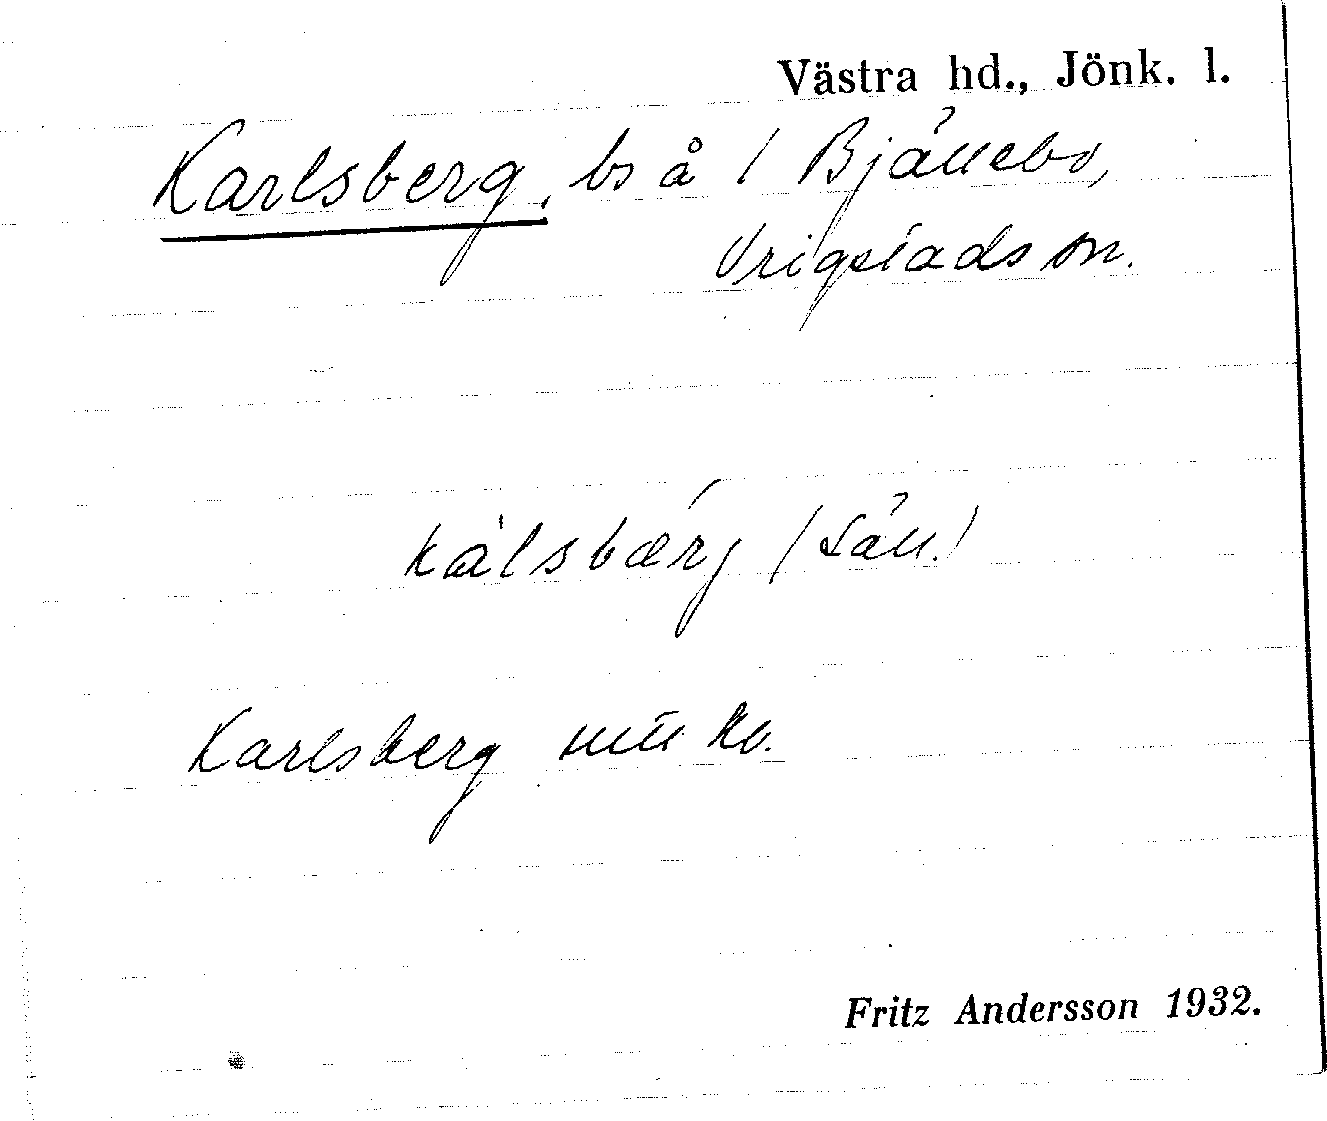 Västra hd., Jönk. l.
Karlsberg, bs å / Bjällebo,
Vrigstads sn.
kàlsbærj (Säll.)
Karlsberg
Fritz Andersson 1932.